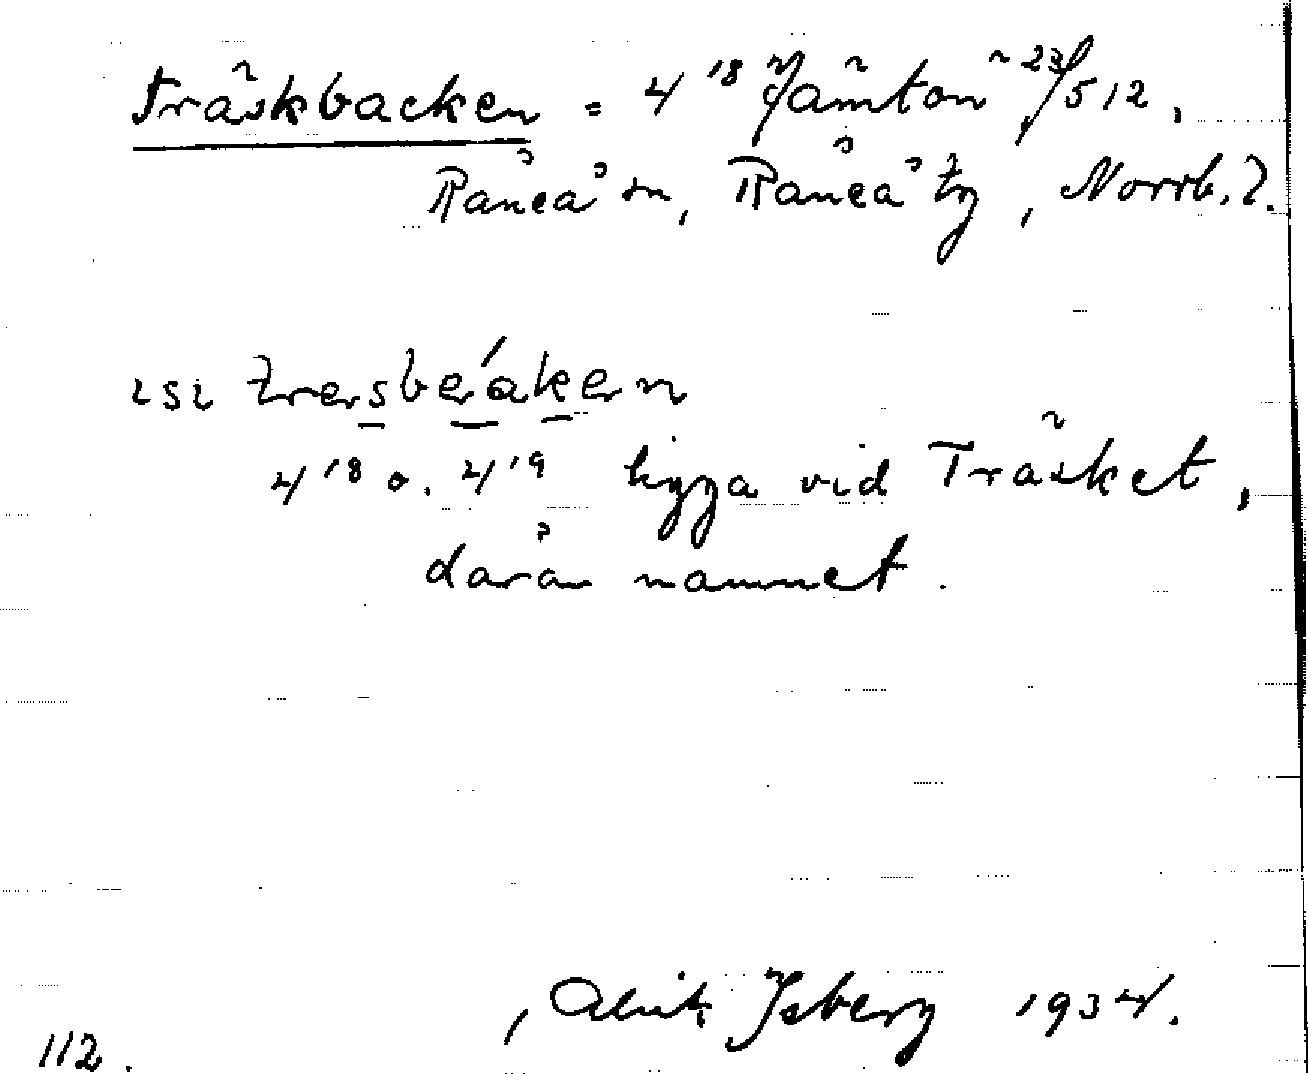 Träskbacken = 4¹⁸ Jämtön ²³/512,
Råneå sn, Råneå tg, Norrb. l.
ligga vid Träsket,
4¹⁸ o. 4¹⁹ ligga vid Träsket,
därån namnet.
Isberg 1934.
112.